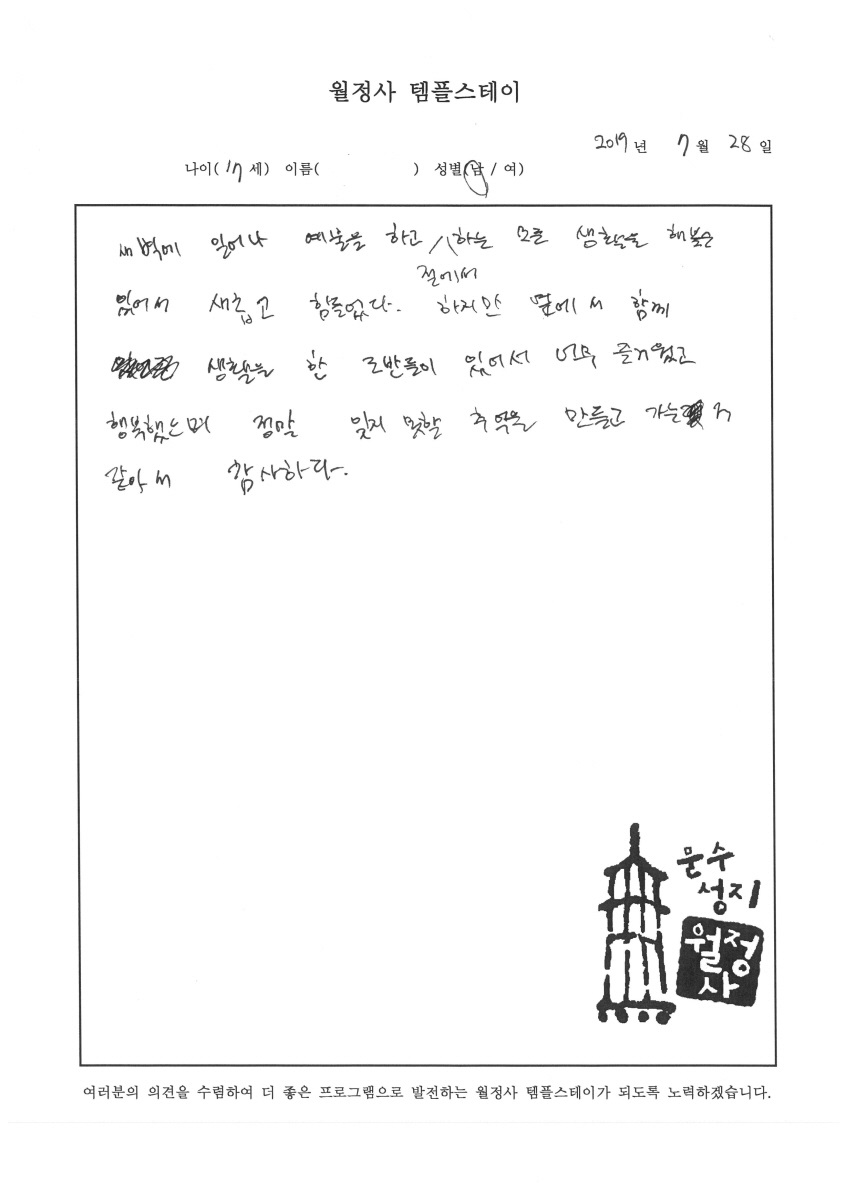 월정사 템플스테이
2019년 7월 28일
나이( 17 세) 이름( ) 성별(남 / 여)
새벽에 일어나 예불을 하고 절에서 하는 모든 생활을 해볼수
있어서 새롭고 힘들었다. 하지만 옆에서 함께
생활을 한 도반들이 있어서 너무 즐거웠고
행복했으며 정말 잊지 못할 추억을 만들고 가는 거
같아서 감사하다.
문수
성지
월정
사
여러분의 의견을 수렴하여 더 좋은 프로그램으로 발전하는 월정사 템플스테이가 되도록 노력하겠습니다.